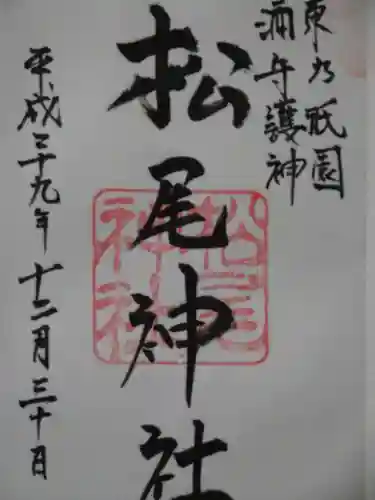 東の祇園
酒守護神
松尾神社
平成二十九年 十二月三十日
松尾神社